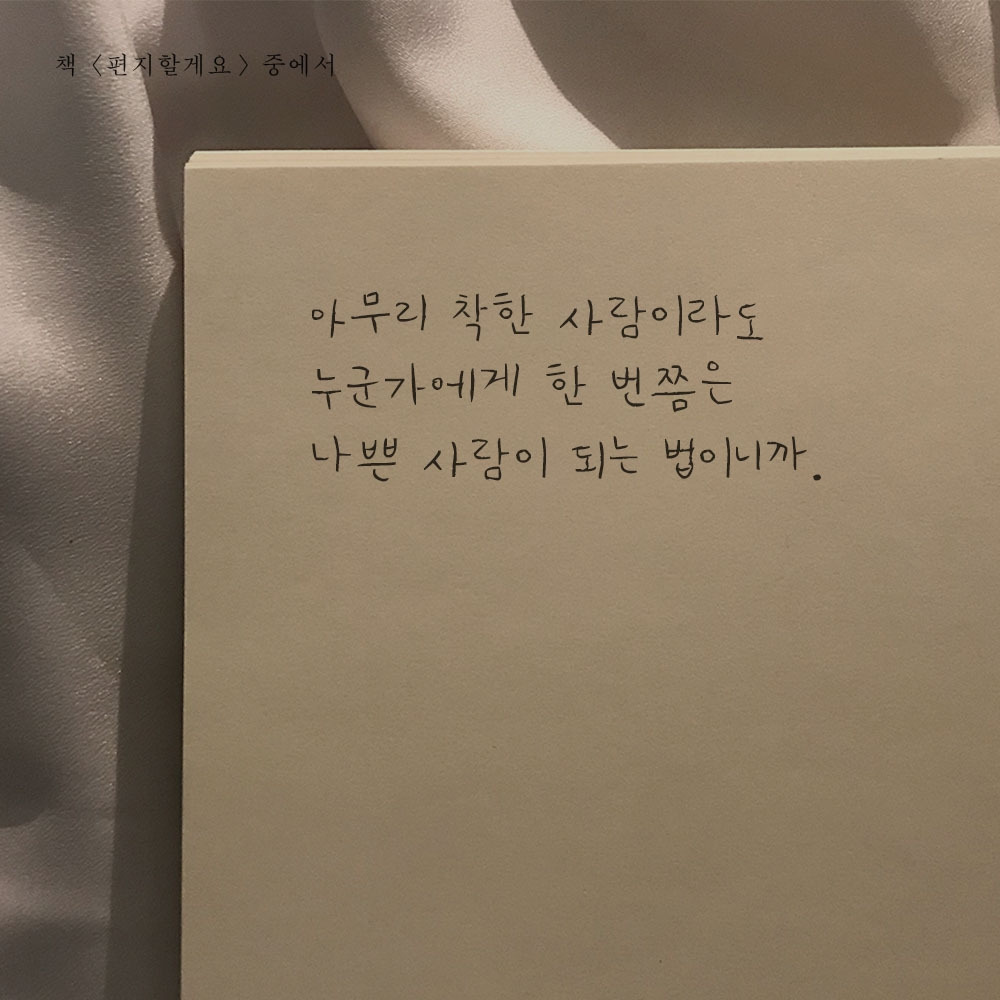 책 〈편지할게요〉 중에서
아무리 착한 사람이라도
누군가에게 한 번쯤은
나쁜 사람이 되는 법이니까.